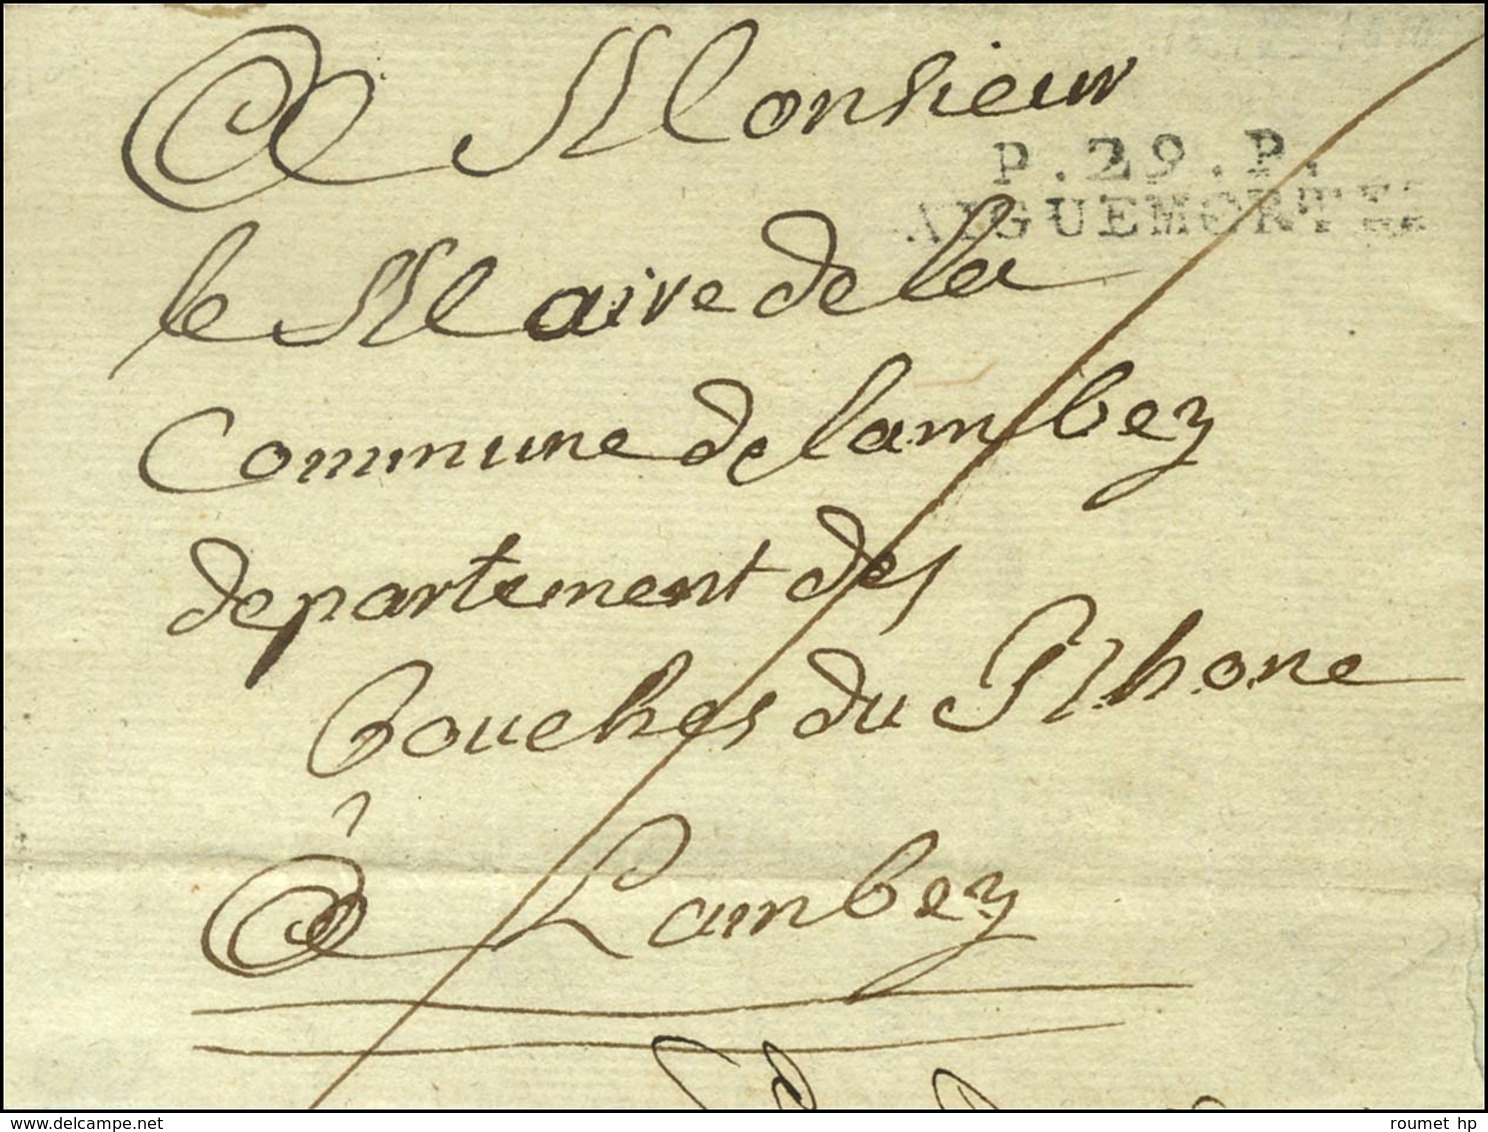 A Monsieur
P.29.P.
AIGUEMORTES
le Maire de la
Commune de lambez
departement des
bouches du Rhone
à Lambez
delcampe.net
roumet hp